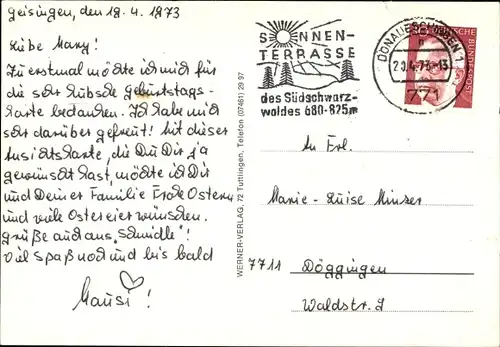 Geisingen, den 18.4.1973
Liebe Mary!
Zu erstmal möchte ich mich für
die sehr hübsche Geburtstags-
karte bedanken. Ich habe mich
sehr darüber gefreut! Mit dieser
Ansichtskarte, die Du Dir ja
gewünscht hast, möchte ich Dir
und Deiner Familie Frohe Ostern
und viele Ostereier wünschen.
Grüße auch aus "Schmidle"!
Viel Spaß noch und bis bald
Mausi!
WERNER-VERLAG, 72 Tuttlingen, Telefon (07461) 29 97
SONNEN-
TERRASSE
des Südschwarz-
waldes 680-825m
DONAUESCHINGEN 1
20.4.73-13
771
DEUTSCHE BUNDESPOST
An Frl.
Marie-Luise Minzer
7711 Döggingen
Waldstr. 9